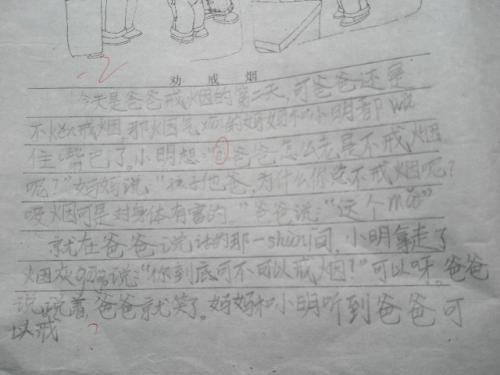 劝戒烟
今天是爸爸戒烟的第二天,可爸爸还是
不戒烟,那烟气呛的妈妈和小明都wǔ
住嘴巴了。小明想:“爸爸怎么老是不戒烟
呢?”妈妈说,“孩子他爸,为什么你老不戒烟呢?
吸烟可是对身体有害的。”爸爸说:“这个mó”
就在爸爸说话的那一shùn间,小明拿走了
烟灰gāng说:“你到底可不可以戒烟?”可以呀。爸爸
说,说着,爸爸就笑了。妈妈和小明听到爸爸可
以戒